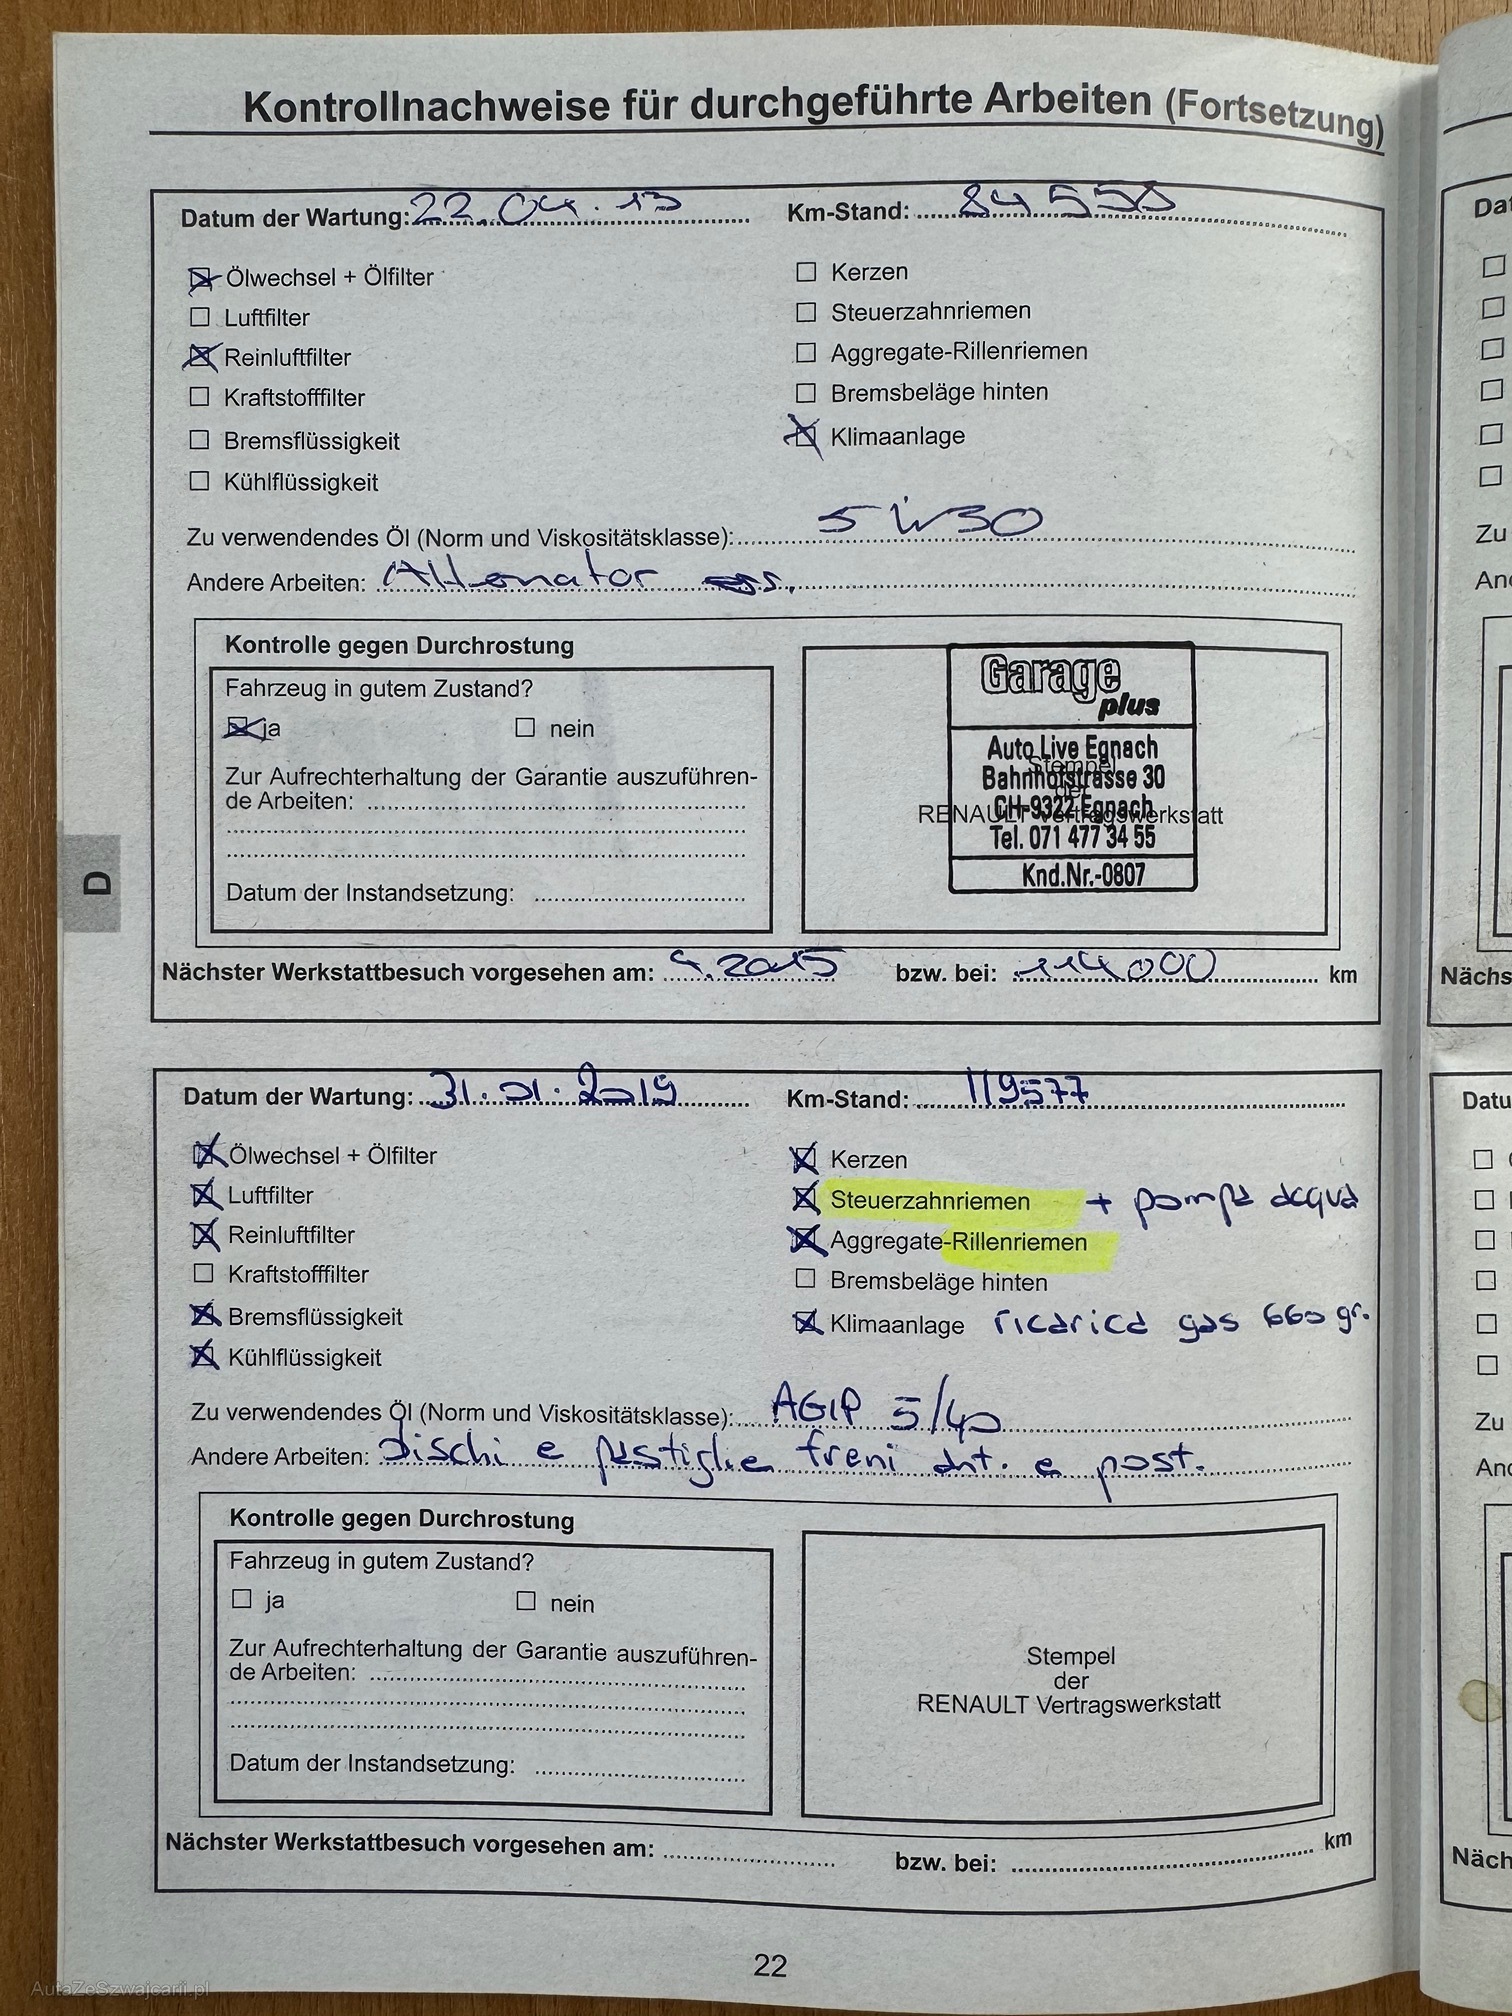 Kontrollnachweise für durchgeführte Arbeiten (Fortsetzung)
Datum der Wartung: 22.04.13 Km-Stand: 84550
Ölwechsel + Ölfilter
Luftfilter
Reinluftfilter
Kraftstofffilter
Bremsflüssigkeit
Kühlflüssigkeit
Kerzen
Steuerzahnriemen
Aggregate-Rillenriemen
Bremsbeläge hinten
Klimaanlage
Zu verwendendes Öl (Norm und Viskositätsklasse): 5W30
Andere Arbeiten: Alternator
Kontrolle gegen Durchrostung
Fahrzeug in gutem Zustand?
ja nein
Zur Aufrechterhaltung der Garantie auszuführen-
de Arbeiten:
Datum der Instandsetzung:
Garage
plus
Auto Live Egnach
Bahnhofstrasse 30
CH-9322 Egnach
Tel. 071 477 34 55
Knd.Nr.-0807
Stempel
der
RENAULT Vertragswerkstatt
Nächster Werkstattbesuch vorgesehen am: 4.2015 bzw. bei: 114000 km
D
Datum der Wartung: 31.01.2019 Km-Stand: 119577
Ölwechsel + Ölfilter
Luftfilter
Reinluftfilter
Kraftstofffilter
Bremsflüssigkeit
Kühlflüssigkeit
Kerzen
Steuerzahnriemen + pompa acqua
Aggregate-Rillenriemen
Bremsbeläge hinten
Klimaanlage ricarica gas 660 gr.
Zu verwendendes Öl (Norm und Viskositätsklasse): AGIP 5/40
Andere Arbeiten: dischi e pastiglie freni ant. e post.
Kontrolle gegen Durchrostung
Fahrzeug in gutem Zustand?
ja nein
Zur Aufrechterhaltung der Garantie auszuführen-
de Arbeiten:
Datum der Instandsetzung:
Stempel
der
RENAULT Vertragswerkstatt
Nächster Werkstattbesuch vorgesehen am: bzw. bei: km
22
Dat
Zu
And
Nächs
Datu
Zu
And
Näch
AutaZeSzwajcarii.pl